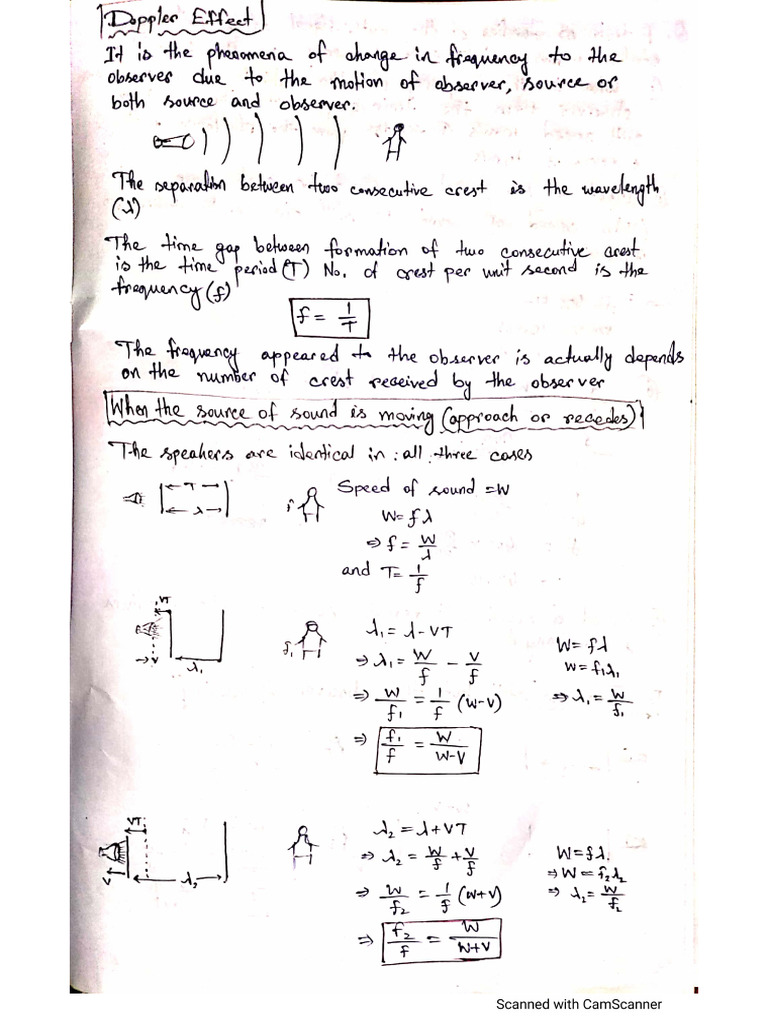 Doppler Effect
It is the phenomena of change in frequency to the
observer due to the motion of observer, source or
both source and observer.
The separation between two consecutive crest is the wavelength
(λ)
The time gap between formation of two consecutive crest
is the time period (T) No. of crest per unit second is the
frequency (f)
f = 1/T
The frequency appeared to the observer is actually depends
on the number of crest received by the observer
When the source of sound is moving (approach or recedes)
The speakers are identical in all three cases
T
λ
f
Speed of sound = W
W = fλ
⇒ f = W/λ
and T = 1/f
VT
→ V
λ₁
f₁
λ₁ = λ - VT
⇒ λ₁ = W/f - V/f
⇒ W/f₁ = 1/f (W-V)
⇒ f₁/f = W/(W-V)
W = fλ
W = f₁λ₁
⇒ λ₁ = W/f₁
VT
V
λ₂
λ₂ = λ + VT
⇒ λ₂ = W/f + V/f
⇒ W/f₂ = 1/f (W+V)
⇒ f₂/f = W/(W+V)
W = fλ.
⇒ W = f₂λ₂
⇒ λ₂ = W/f₂
Scanned with CamScanner